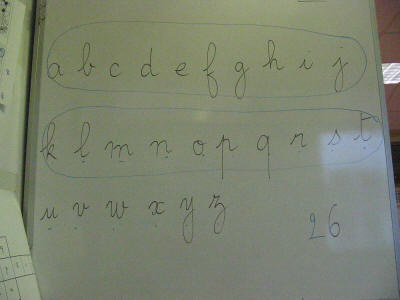 a b c d e f g h i j
k l m n o p q r s t
u v w x y z
26